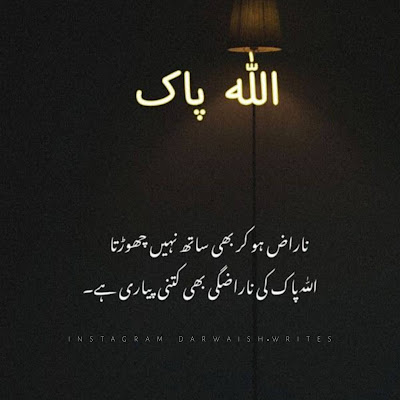 اللہ پاک
ناراض ہو کر بھی ساتھ نہیں چھوڑتا
اللہ پاک کی ناراضگی بھی کتنی پیاری ہے۔
INSTAGRAM DARWAISH.WRITES